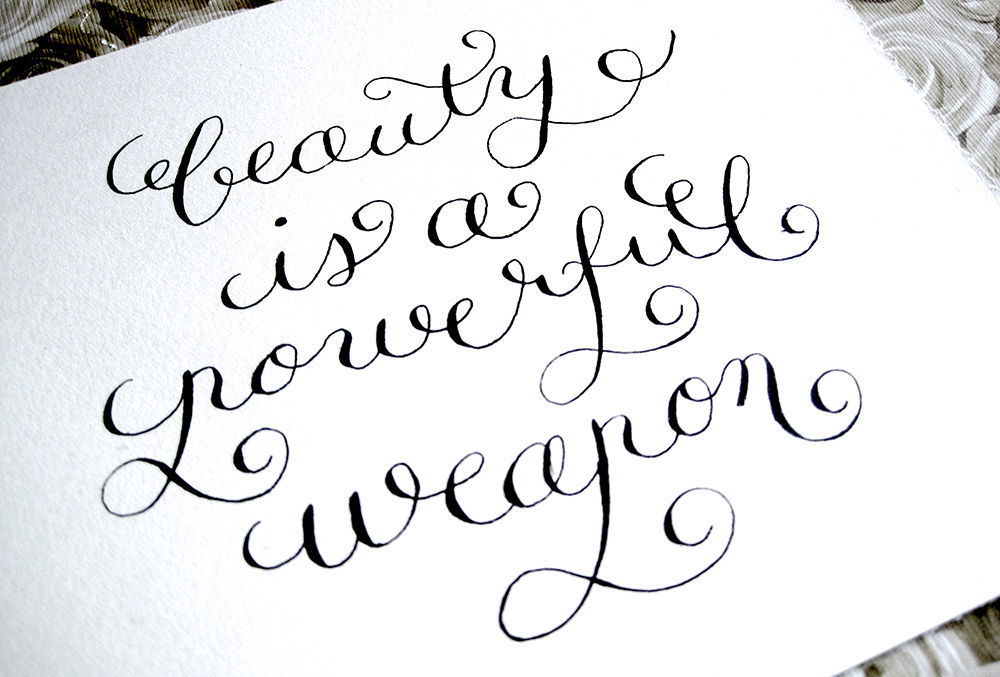 beauty
is a
powerful
weapon